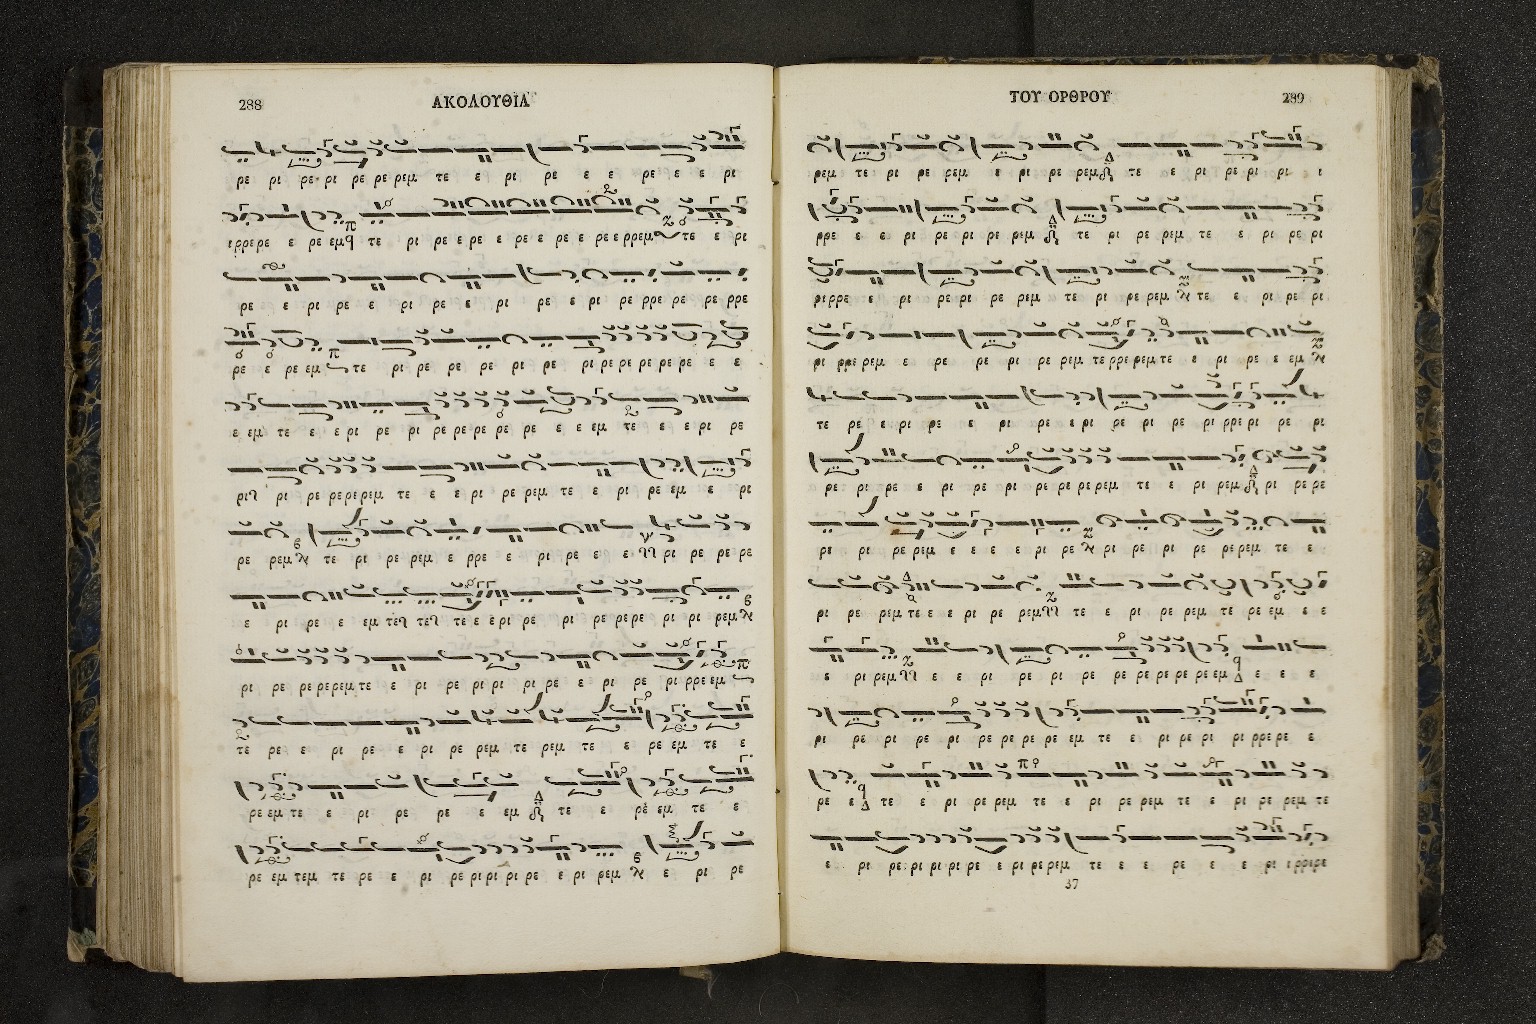 288
ΑΚΟΛΟΥΘΙΑ
ρε ρι ρε ρι ρε ρε ρεμ τε ε ρι ρε ε ε ρε ε ε ρι
ι ρρε ρε ε ρε εμ τε ρι ρε ε ρε ε ρε ε ρε ε ρε ε ρρεμ τε ε ρι
ρε ε ρι ρε ε ρι ρε ε ρι ρε ε ρι ρε ρρε ρε ρε ρρε
ρε ε ρε εμ τε ρι ρε ρε ρε ρι ρε ρι ρε ρε ρε ρε ρε ε ε
ε εμ τε ε ε ρι ρε ρι ρε ρε ρε ρε ρε ε ε εμ τε ε ε ρι ρε
ρι ρι ρε ρε ρε ρεμ τε ε ε ρι ρε ρεμ τε ε ρι ρε εμ ε ρι
ρε ρεμ τε ρι ρε ρεμ ε ρρε ε ρι ρε ε ε ρι ρε ρε ρε
ε ρι ρε ε εμ τε τε τε ε ε ρι ρε ρι ρε ρε ρε ρι ρι ρεμ
ρι ρε ρε ρε ρεμ τε ε ρι ρε ρι ρι ρι ρε ε ρι ρε ρι ρρε εμ
τε ρε ε ρι ρε ε ρι ρε ρεμ τε ρεμ τε ε ρε εμ τε ε
ρε εμ τε ε ρι ρε ρε ε εμ τε ε ρε εμ τε ε
ρε εμ τεμ τε ρε ε ρι ρε ρι ρι ρι ρι ρε ε ρι ρεμ ε ρι ρε
ΤΟΥ ΟΡΘΡΟΥ
289
ρεμ τε ρι ρε ρεμ ε ρι ρε ρεμ τε ε ρι ρε ρι ρι ι
ρρε ε ε ρι ρε ρι ρε ρεμ τε ρι ρε ρεμ τε ε ρι ρε ρι
ρι ρρε ε ρι ρε ρι ρε ρεμ τε ρι ρε ρεμ τε ε ρι ρε ρι
ρι ρρε ρεμ ε ρε ρε ρι ρε ρεμ τε ρρε ρεμ τε ε ρι ρε ε εμ
τε ρε ε ρι ρε ε ρι ρε ε ρι ρε ρι ρε ρι ρρε ρι ρε ρι
ρε ρι ρε ε ρι ρε ρι ρε ρε ρε ρεμ τε ε ρι ρεμ ρι ρε ρε
ρε ρι ρε ρεμ ε ε ε ε ρι ρε ρι ρε ρι ρε ρε ρεμ τε ε
ρι ρε ρεμ τε ε ε ρι ρε ρεμ τε ε ρι ρε ρεμ τε ρε εμ ε ε
ε ρι ρεμ ε ε ρι ρε ρι ρε ρε ρε ρε ρε ρε εμ ε ε ε
ρι ρε ρι ρε ρι ρε ρε ρε ρε εμ τε ε ρι ρε ρι ρι ρρε ρε ε
ρε ε τε ε ρι ρε ρεμ τε ε ρι ρε ρεμ τε ε ρι ρε ρεμ τε
ε ρι ρε ρι ρι ρι ρι ρε ε ρι ρε ρεμ τε ε ε ρε ε ε ρι ι ρρι ρε
37